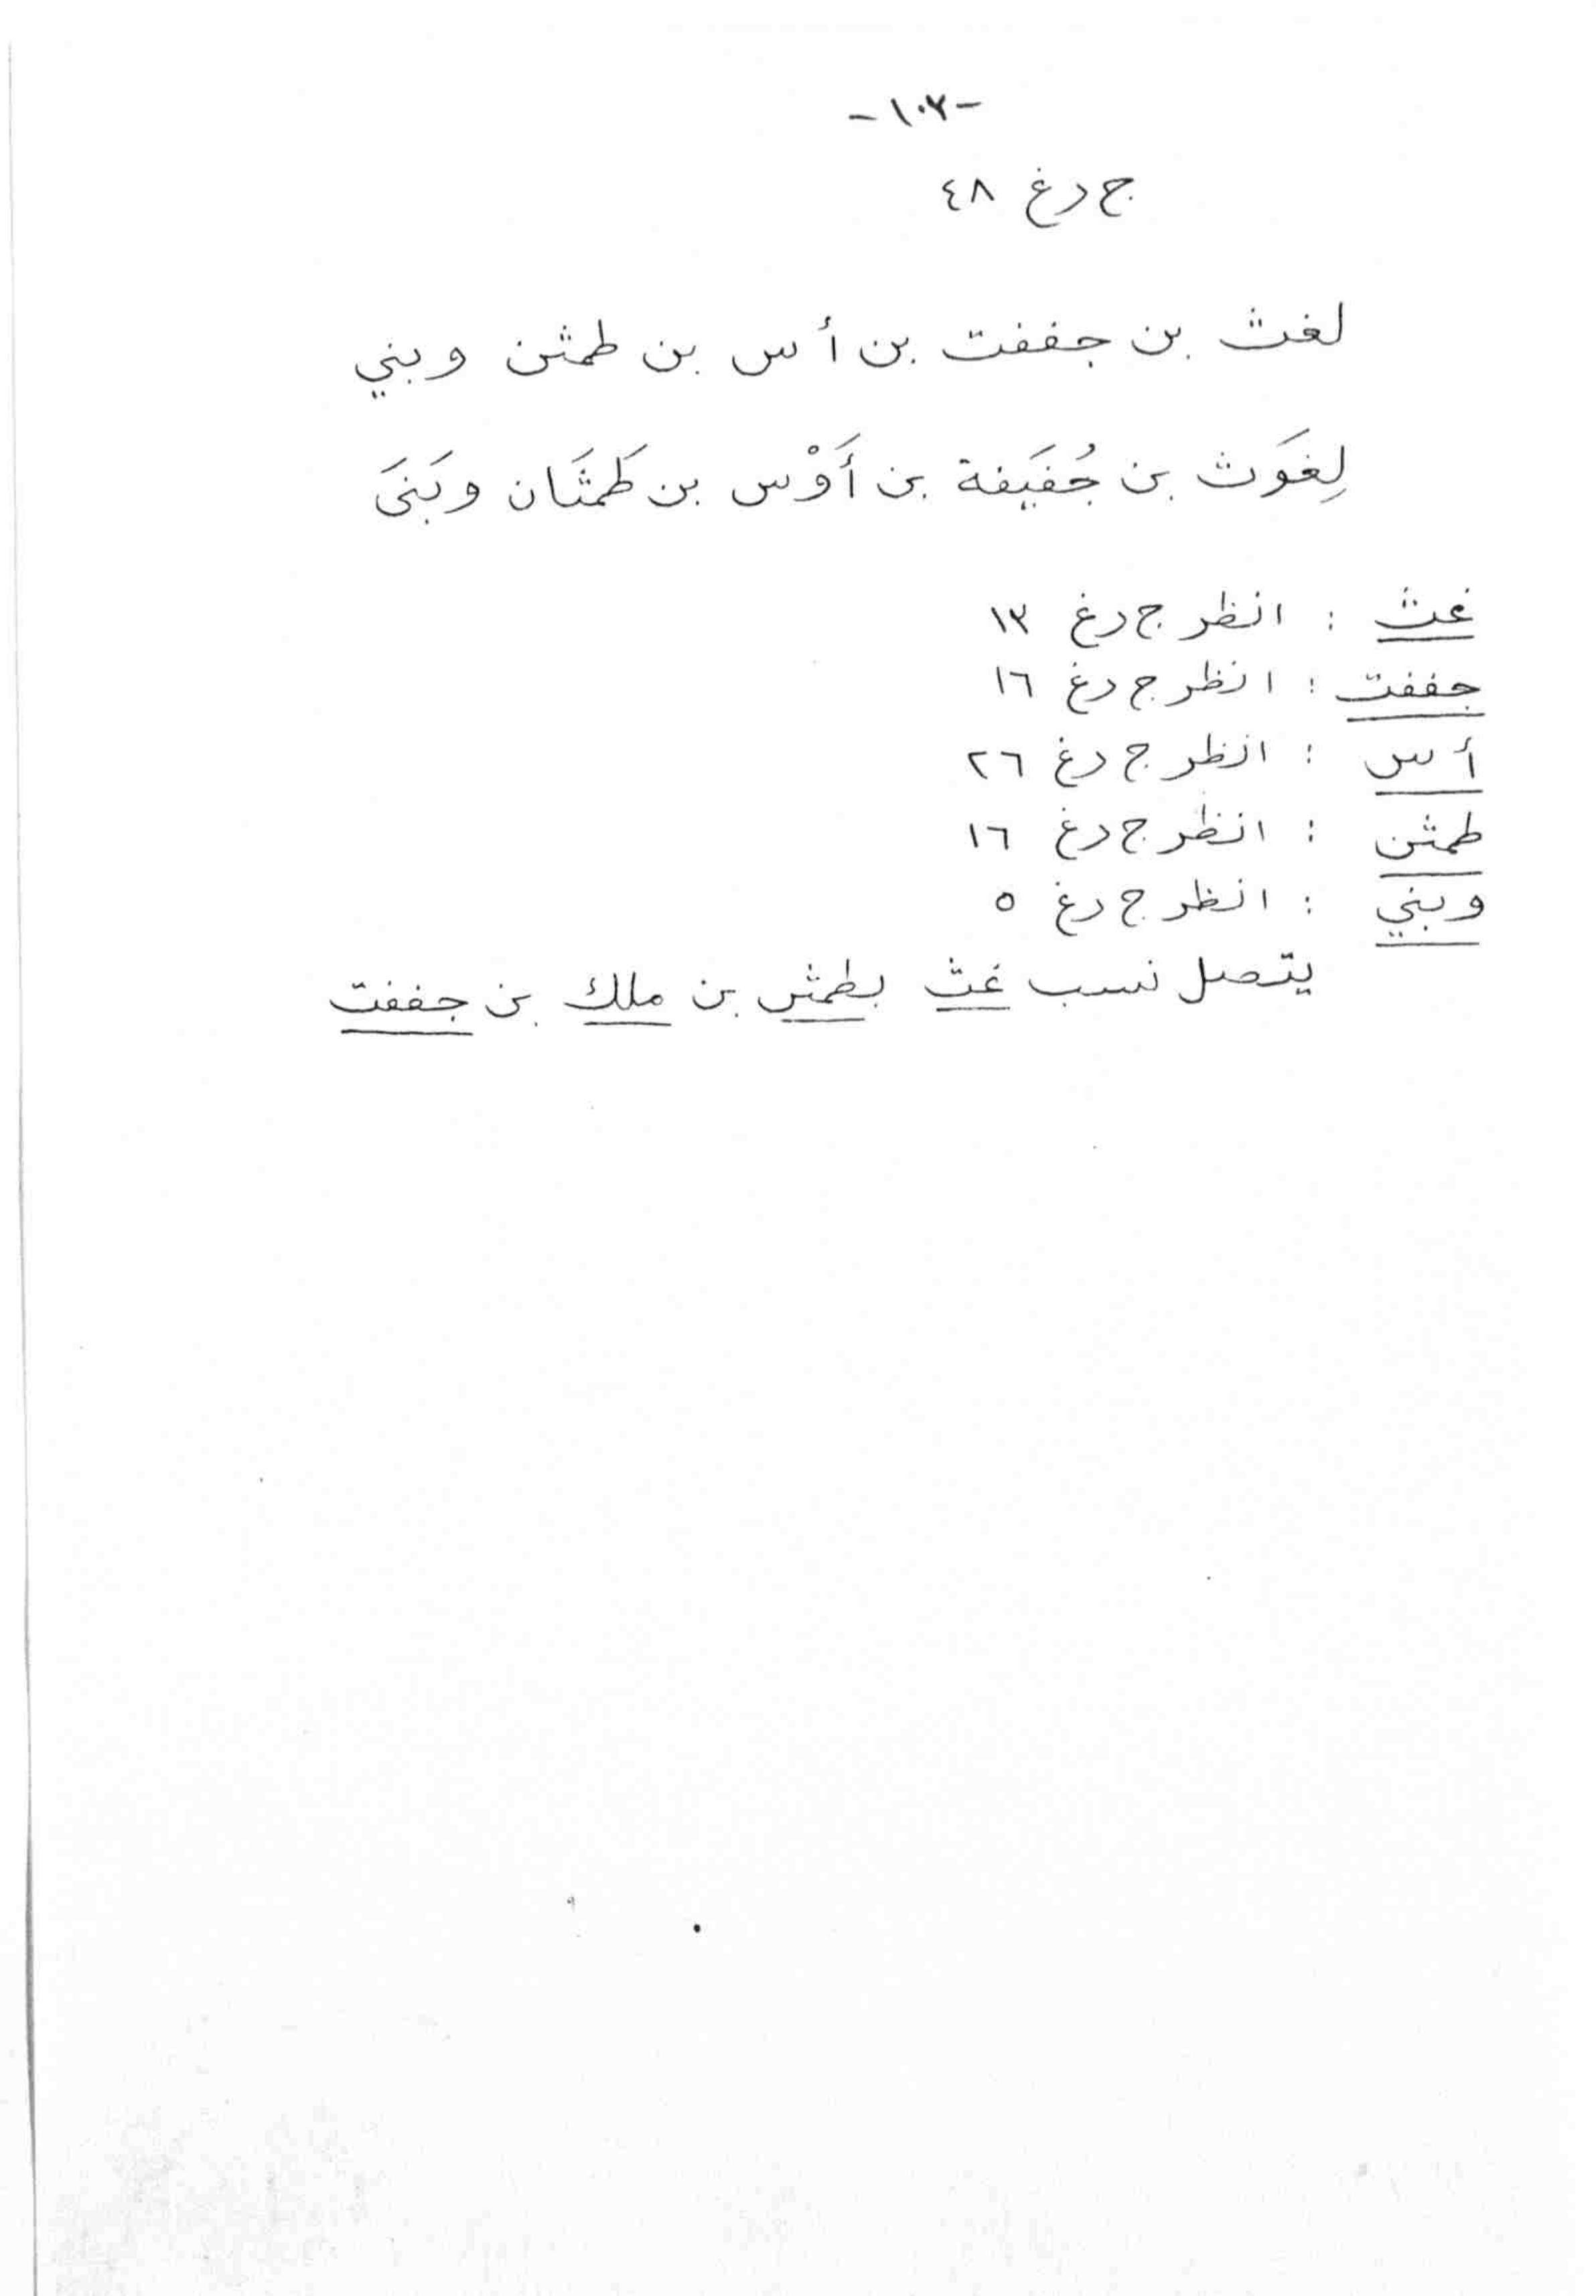 -١٠٢-
ج رغ ٤٨
لغث بن جففت بن أس بن طمثن وبني
لِغَوَث بن جُفَيفة بن أَوْس بن طَمثَان وبَنَى
غث : انظر ج رغ ١٣
جففت : انظر ج رغ ١٦
أس : انظر ج رغ ٢٦
طمثن : انظر ج رغ ١٦
وبني : انظر ج رغ ٥
يتصل نسب غث بطمثن بن ملك بن جففت